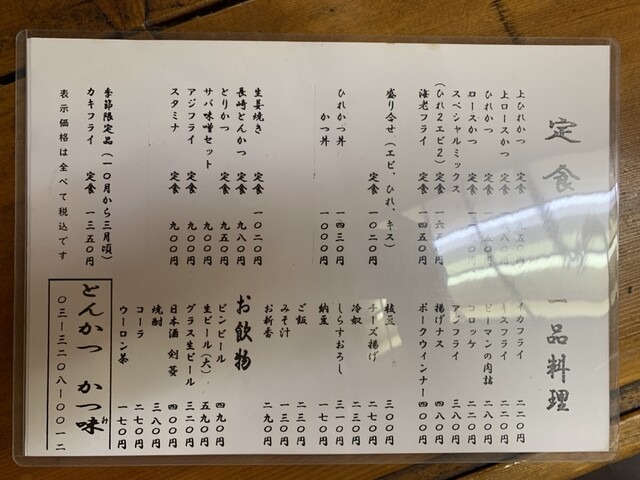 定食
上ひれかつ 定食
上ロースかつ 定食
ひれかつ 定食
ロースかつ 定食
スペシャルミックス
(ひれ2エビ2) 定食
海老フライ 定食 一四五〇円
盛り合せ(エビ、ひれ、キス)
定食 一〇二〇円
ひれかつ丼 一四三〇円
かつ丼 一〇〇〇円
生姜焼き 定食 一〇二〇円
長崎とんかつ 定食 九八〇円
とりかつ 定食 九五〇円
サバ味噌セット 九〇〇円
アジフライ 定食 九〇〇円
スタミナ 定食 九〇〇円
季節限定品(一〇月から三月頃)
カキフライ 定食 一三五〇円
表示価格は全べて税込です
一品料理
イカフライ 二二〇円
キスフライ 二二〇円
ピーマンの肉詰 二八〇円
コロッケ 二二〇円
アジフライ 三八〇円
揚げナス 四八〇円
ポークウィンナー 四〇〇円
枝豆 三〇〇円
チーズ揚げ 二七〇円
冷奴 二五〇円
しらすおろし 三一〇円
納豆 一七〇円
ご飯 二三〇円
みそ汁 一三〇円
お新香 二九〇円
お飲物
ビンビール 四九〇円
生ビール(大) 五九〇円
グラス生ビール 三二〇円
日本酒 剣菱 四〇〇円
焼酎 三八〇円
コーラ 二七〇円
ウーロン茶 一七〇円
とんかつ かつ味
〇三-三二〇八-〇〇一二